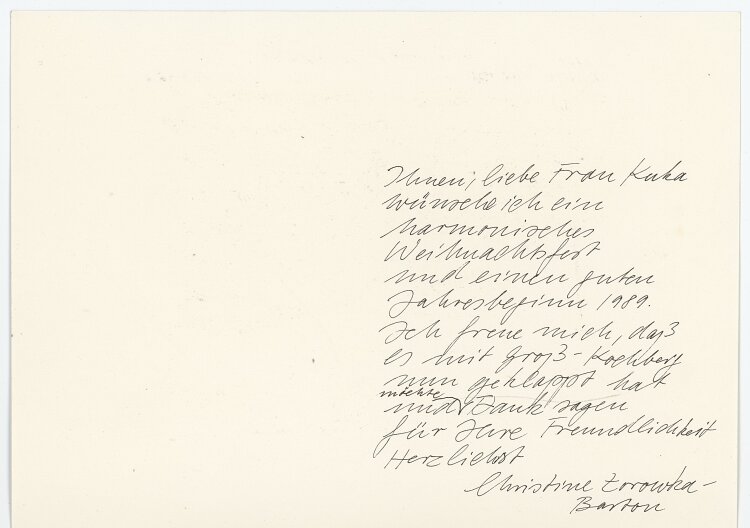 Ihnen, liebe Frau Kuka
wünsche ich ein
harmonisches
Weihnachtsfest
und einen guten
Jahresbeginn 1989.
Ich freue mich, daß
es mit Groß-Kochberg
nun geklappt hat
möchte
und Dank sagen
für Ihre Freundlichkeit
Herzlichst
Christine Zorowka-
Barton